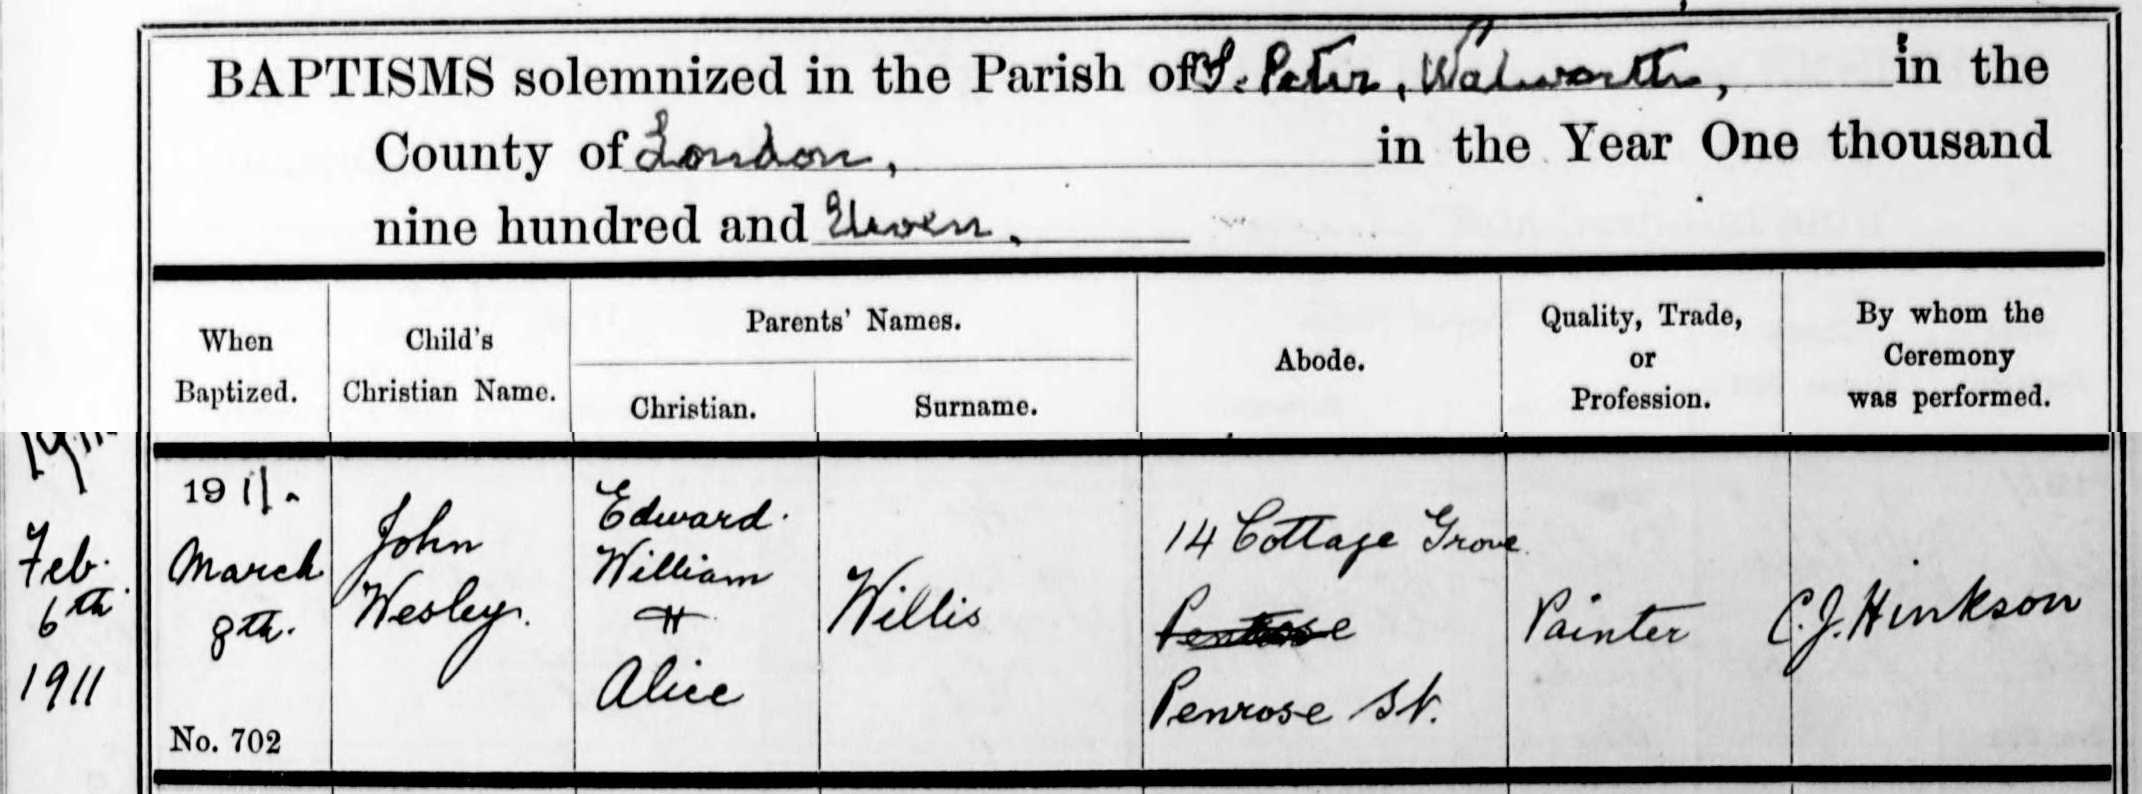 BAPTISMS solemnized in the Parish of S. Peter, Walworth, in the
County of London, in the Year One thousand
nine hundred and Eleven.
When
Baptized.
Child's
Christian Name.
Parents' Names.
Christian.
Surname.
Abode.
Quality, Trade,
or
Profession.
By whom the
Ceremony
was performed.
Feb.
6th
1911
1911.
March
8th.
No. 702
John
Wesley.
Edward
William
Alice
Willis
14 Cottage Grove
Penrose St.
Painter
C.J. Hinkson